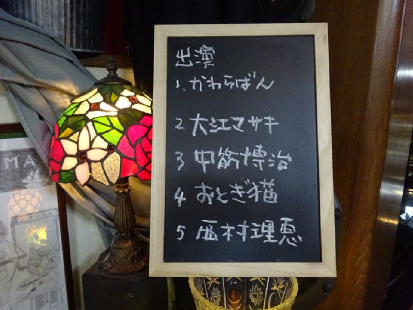 出演
1. かわらばん
2 大江マサキ
3 中筋博治
4 おとぎ猫
5 西村理恵
MA